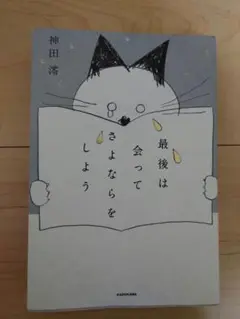 神田澪
最後は
会って
さよならを
しよう
KADOKAWA